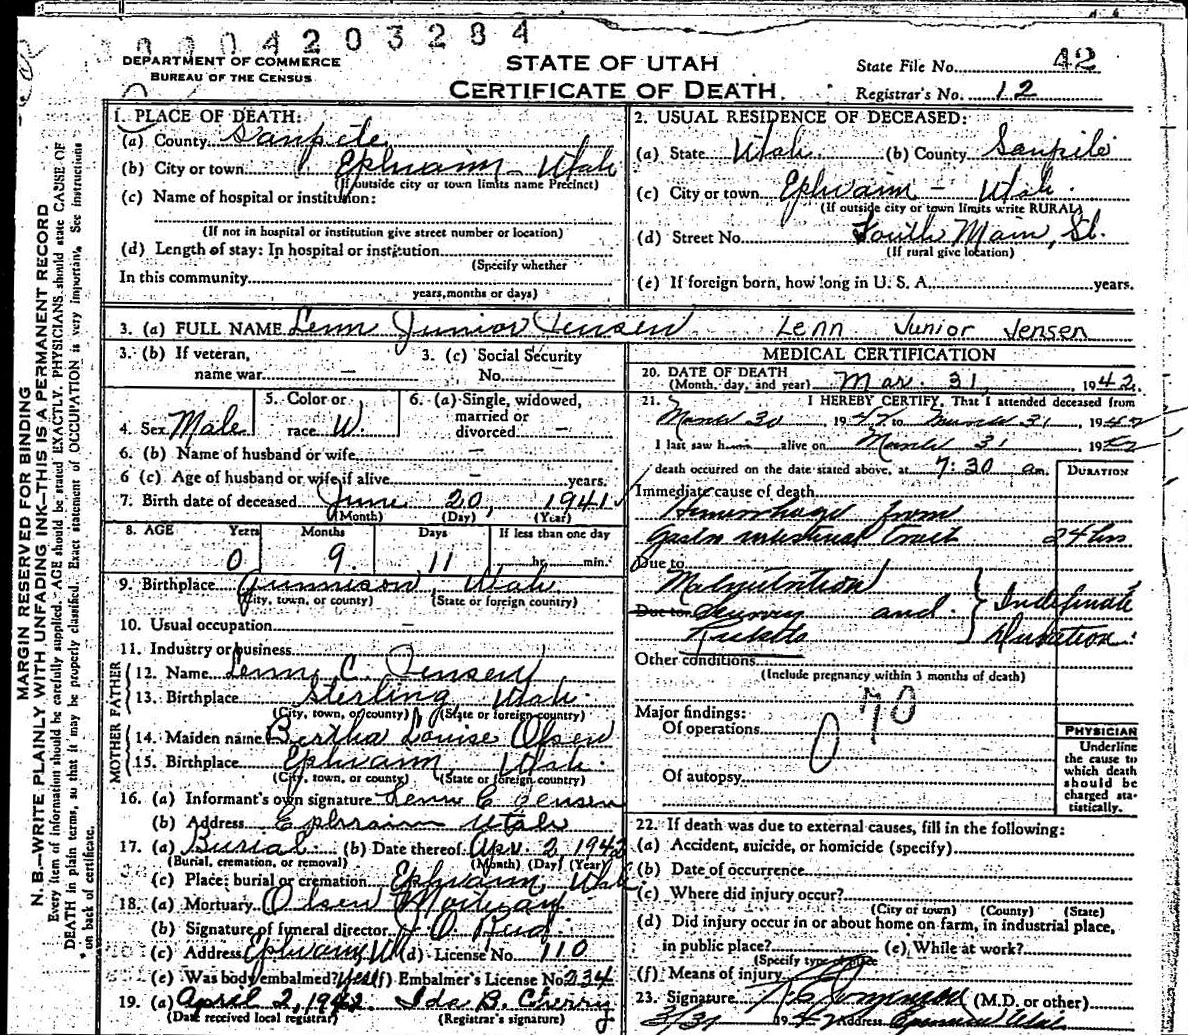 0004203284
DEPARTMENT OF COMMERCE
BUREAU OF THE CENSUS
STATE OF UTAH
CERTIFICATE OF DEATH
State File No. 42
Registrar's No. 12
MARGIN RESERVED FOR BINDING
N. B.—WRITE PLAINLY WITH UNFADING INK—THIS IS A PERMANENT RECORD
Every item of information should be carefully supplied. AGE should be stated EXACTLY. PHYSICIANS should state CAUSE OF
DEATH in plain terms, so that it may be properly classified. Exact statement of OCCUPATION is very important. See instructions
on back of certificate.
1. PLACE OF DEATH:
(a) County Sanpete
(b) City or town Ephraim - Utah
(If outside city or town limits name Precinct)
(c) Name of hospital or institution:
(If not in hospital or institution give street number or location)
(d) Length of stay: In hospital or institution
(Specify whether
In this community
years, months or days)
2. USUAL RESIDENCE OF DECEASED:
(a) State Utah (b) County Sanpete
(c) City or town Ephraim - Utah.
(If outside city or town limits write RURAL)
(d) Street No. South Main, St.
(If rural give location)
(e) If foreign born, how long in U. S. A. years.
3. (a) FULL NAME Lenn Junior Jensen Lenn Junior Jensen
3. (b) If veteran,
name war —
3. (c) Social Security
No. —
4. Sex Male
5. Color or
race W.
6. (a) Single, widowed,
married or
divorced —
6. (b) Name of husband or wife —
6 (c) Age of husband or wife if alive — years.
7. Birth date of deceased June 20, 1941
(Month) (Day) (Year)
8. AGE Years Months Days If less than one day
0 9 11 hr. min.
9. Birthplace Gunnison, Utah
(City, town, or county) (State or foreign country)
10. Usual occupation —
11. Industry or business
FATHER
12. Name Lenn C. Jensen
13. Birthplace Sterling Utah.
(City, town, or county) (State or foreign country)
MOTHER
14. Maiden name Bertha Louise Olsen
15. Birthplace Ephraim, Utah.
(City, town, or county) (State or foreign country)
16. (a) Informant's own signature Lenn C Jensen
(b) Address Ephraim Utah
17. (a) Burial (b) Date thereof Apr. 2 1942
(Burial, cremation, or removal) (Month) (Day) (Year)
(c) Place; burial or cremation Ephraim, Utah
18. (a) Mortuary Olsen Mortuary
(b) Signature of funeral director
(c) Address Ephraim U (d) License No. 110
(e) Was body embalmed? yes (f) Embalmer's License No. 234
19. (a) April 2, 1942. Ida B. Cherry
(Date received local registrar) (Registrar's signature)
MEDICAL CERTIFICATION
20. DATE OF DEATH
(Month, day, and year) Mar. 31, 1942
21. I HEREBY CERTIFY, That I attended deceased from
March 30, 1942 to March 31, 1942
I last saw h alive on March 31 1942
death occurred on the date stated above, at 7:30 a m.
DURATION
Immediate cause of death
Hemorrhage from
Gastro intestinal tract 24 hrs
Due to
Malnutrition
Due to Scurvy and
Ricketts
Indefinate
Duration.
Other conditions
(Include pregnancy within 3 months of death)
Major findings:
Of operations
0 70
Of autopsy
PHYSICIAN
Underline
the cause to
which death
should be
charged sta-
tistically.
22. If death was due to external causes, fill in the following:
(a) Accident, suicide, or homicide (specify)
(b) Date of occurrence
(c) Where did injury occur?
(City or town) (County) (State)
(d) Did injury occur in or about home on farm, in industrial place,
in public place? (e) While at work?
(Specify type of place
(f) Means of injury
23. Signature (M.D. or other)
3/31 1942 Address Ephraim Utah